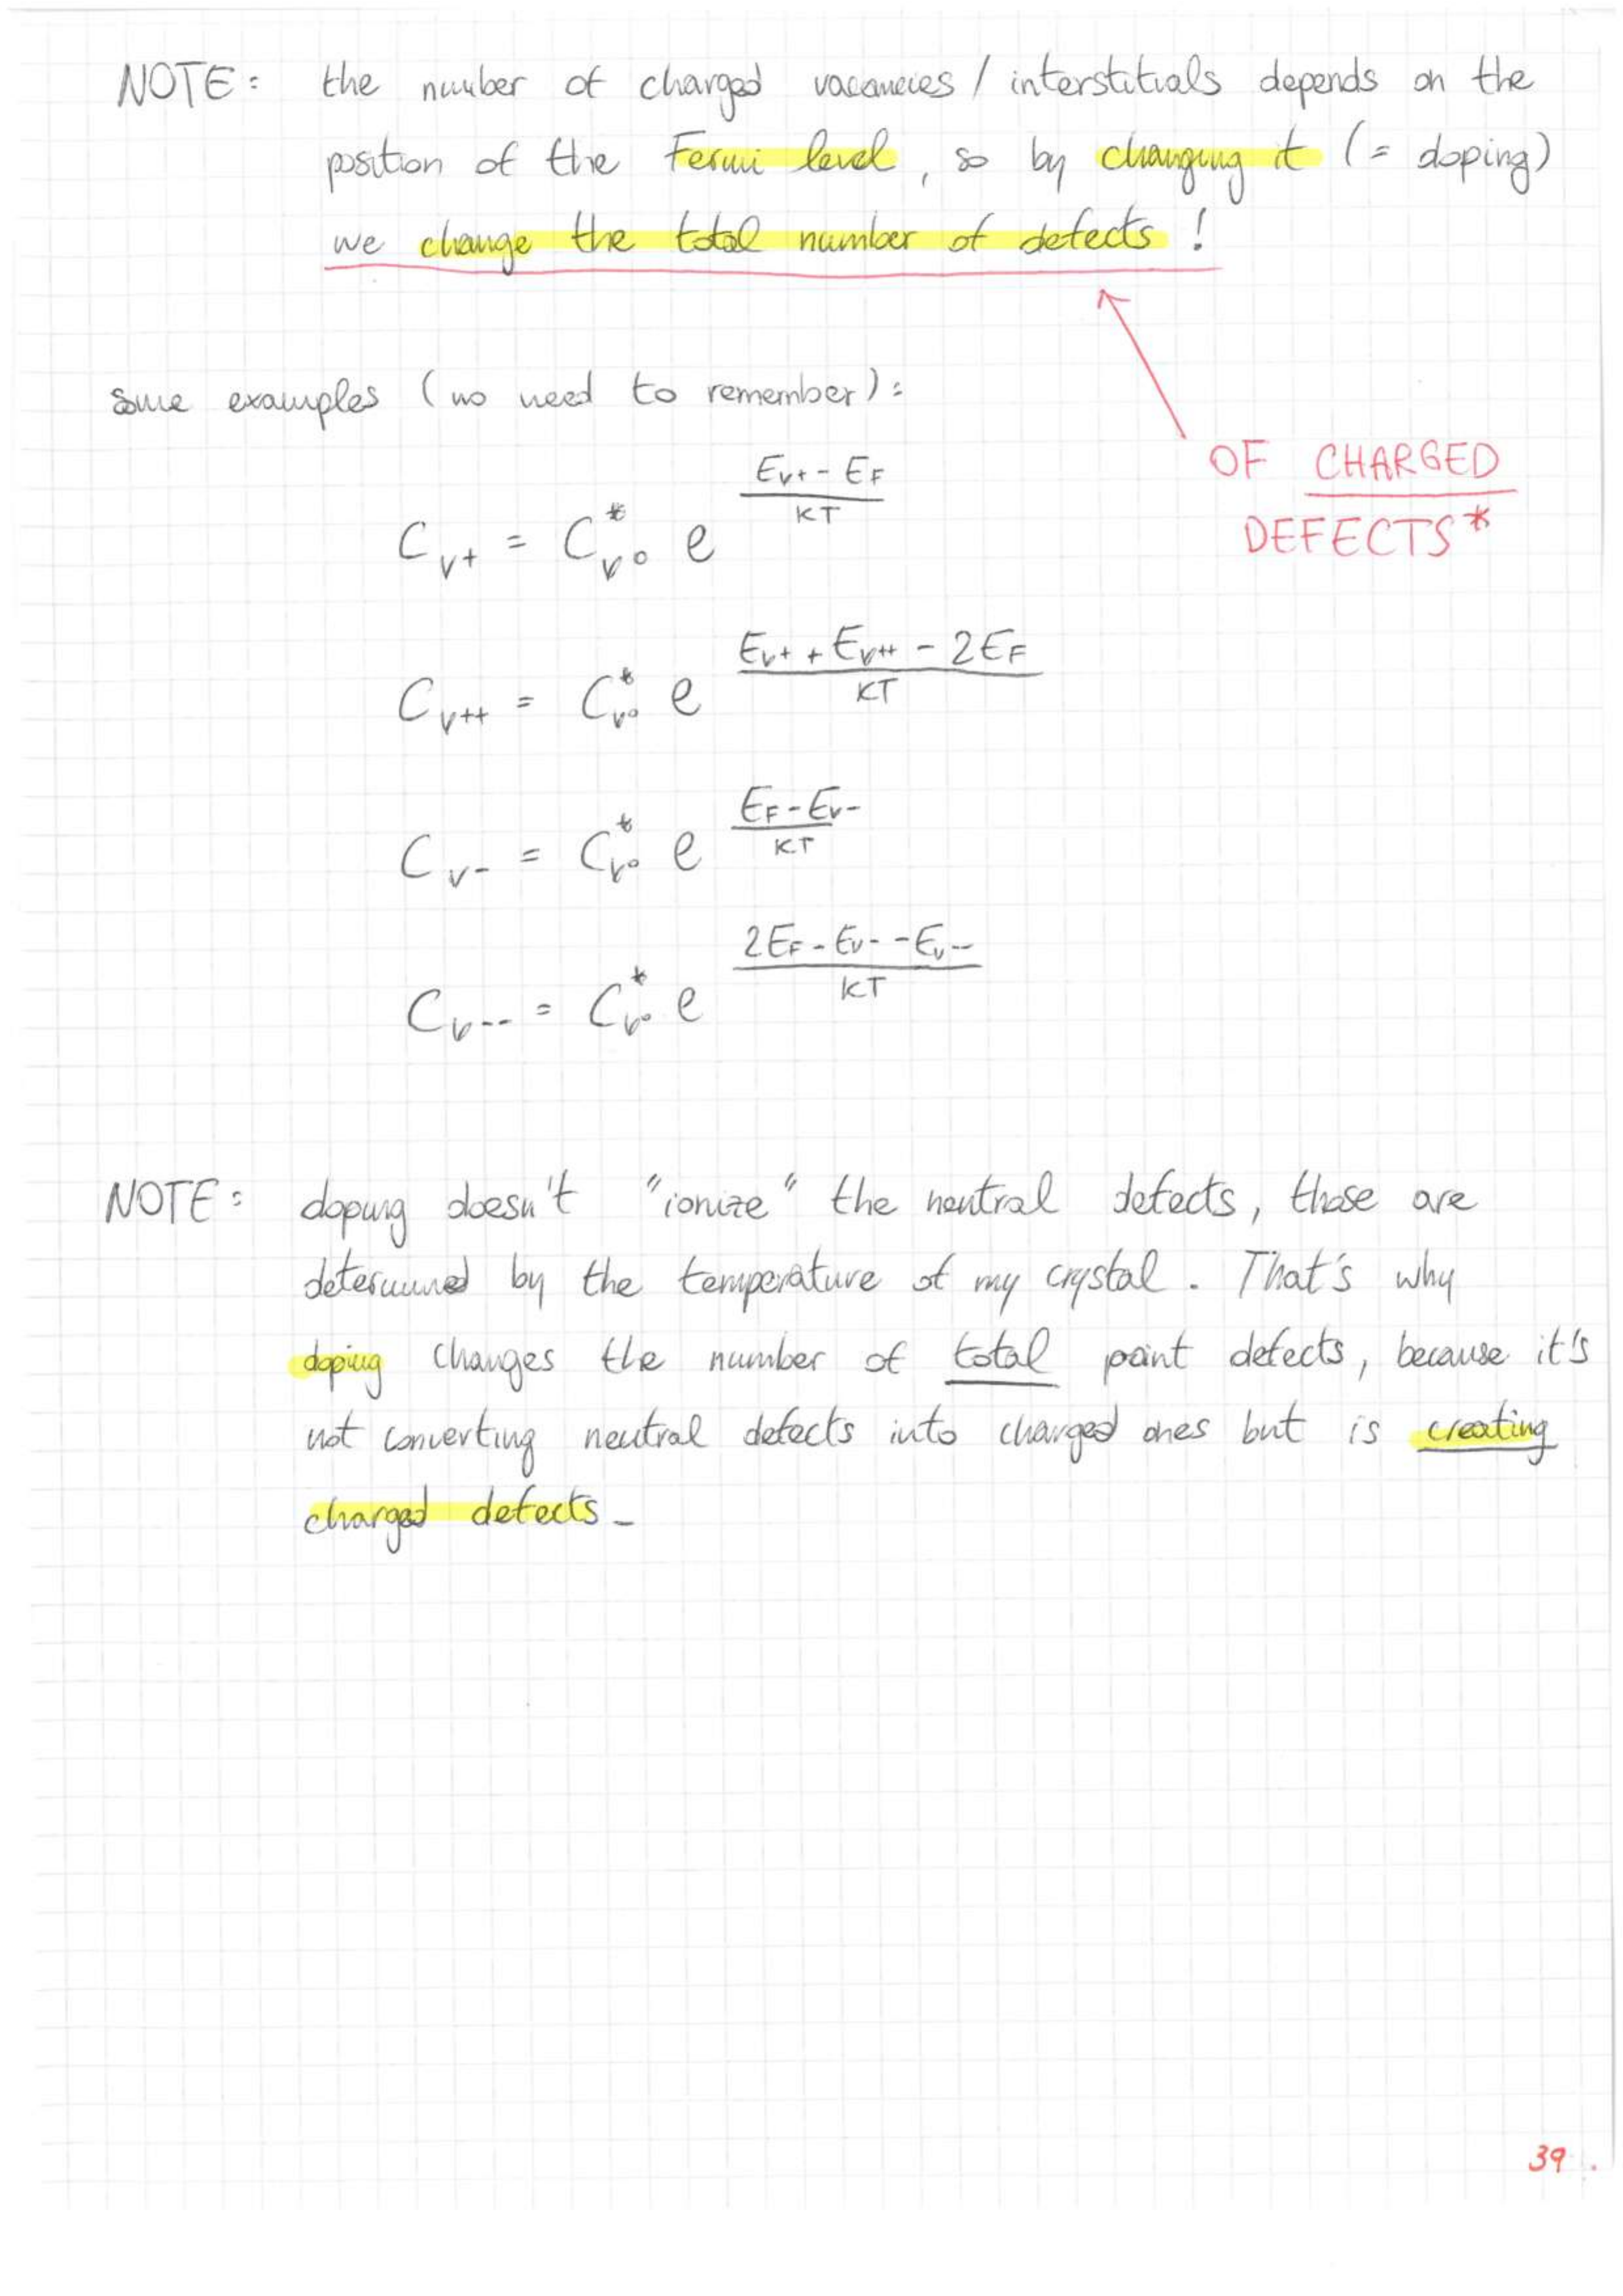 NOTE: the number of charged vacancies / interstitials depends on the
position of the Fermi level, so by changing it (= doping)
we change the total number of defects !
OF CHARGED
DEFECTS*
some examples (no need to remember):
C_{V+} = C*_{V0} e^{(E_{V+} - E_F)/KT}
C_{V++} = C*_{V0} e^{(E_{V+} + E_{V++} - 2E_F)/KT}
C_{V-} = C*_{V0} e^{(E_F - E_{V-})/KT}
C_{V--} = C*_{V0} e^{(2E_F - E_{V-} - E_{V--})/KT}
NOTE: doping doesn't "ionize" the neutral defects, those are
determined by the temperature of my crystal. That's why
doping changes the number of total point defects, because it's
not converting neutral defects into charged ones but is creating
charged defects_
39.